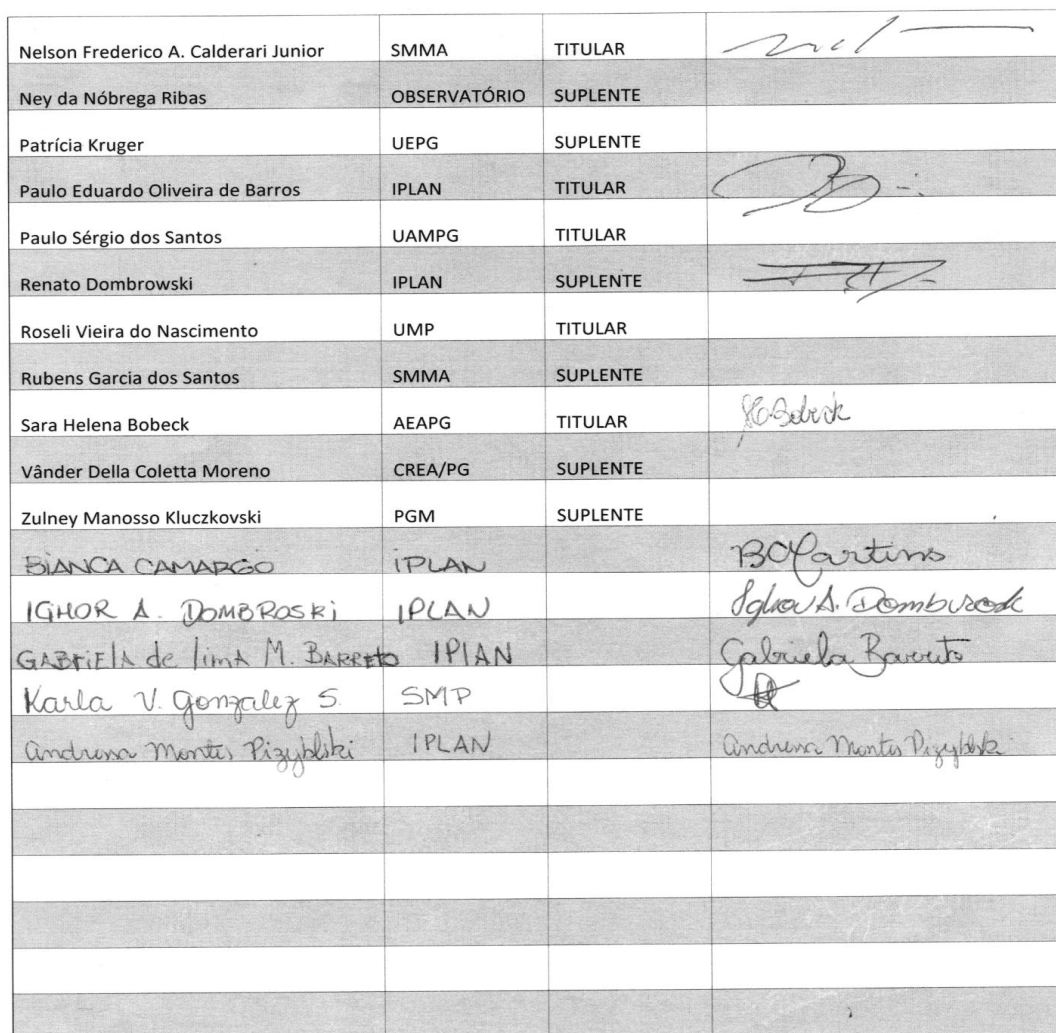 Nelson Frederico A. Calderari Junior SMMA TITULAR
Ney da Nóbrega Ribas OBSERVATÓRIO SUPLENTE
Patrícia Kruger UEPG SUPLENTE
Paulo Eduardo Oliveira de Barros IPLAN TITULAR
Paulo Sérgio dos Santos UAMPG TITULAR
Renato Dombrowski IPLAN SUPLENTE
Roseli Vieira do Nascimento UMP TITULAR
Rubens Garcia dos Santos SMMA SUPLENTE
Sara Helena Bobeck AEAPG TITULAR
Vânder Della Coletta Moreno CREA/PG SUPLENTE
Zulney Manosso Kluczkovski PGM SUPLENTE
BIANCA CAMARGO IPLAN BCMartins
IGHOR A. DOMBROSKI IPLAN Ighor A.
GABRIELA de limA M. BARRETO IPLAN Gabriela Barreto
Karla V. Gonzalez S. SMP
Andressa Montes Pizyblski IPLAN Andressa Montes Pizyblski